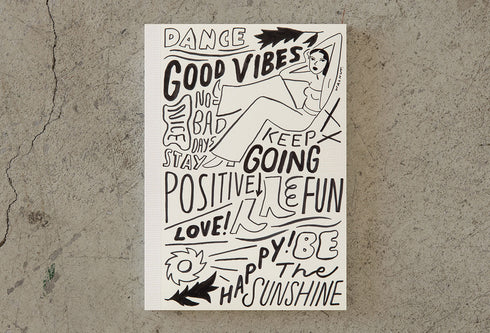 DANCE
GOOD VIBES
NICE
NO
BAD
DAYS
KEEP
GOING
STAY
POSITIVE
FUN
LOVE!
HAPPY!
BE
The
SUNSHINE